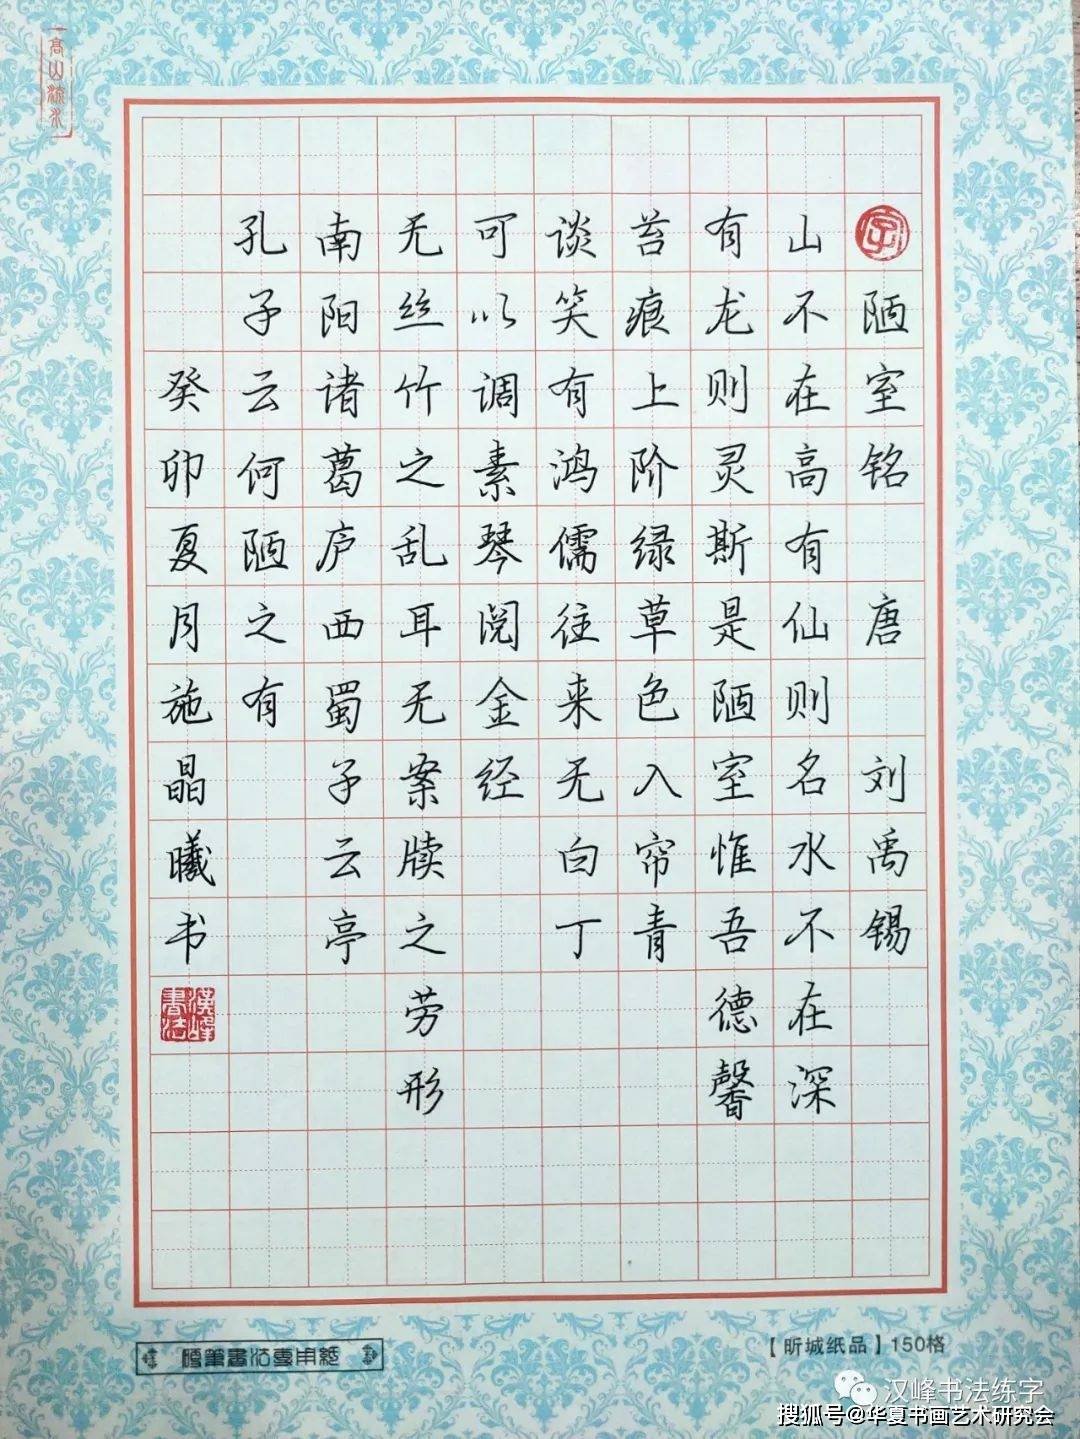 高山流水
陋室铭 唐 刘禹锡
山不在高有仙则名水不在深
有龙则灵斯是陋室惟吾德馨
苔痕上阶绿草色入帘青
谈笑有鸿儒往来无白丁
可以调素琴阅金经
无丝竹之乱耳无案牍之劳形
南阳诸葛庐西蜀子云亭
孔子云何陋之有
癸卯夏月施晶曦书
漢峰書法
硬筆書法專用紙
【昕城纸品】150格
汉峰书法练字
搜狐号@华夏书画艺术研究会